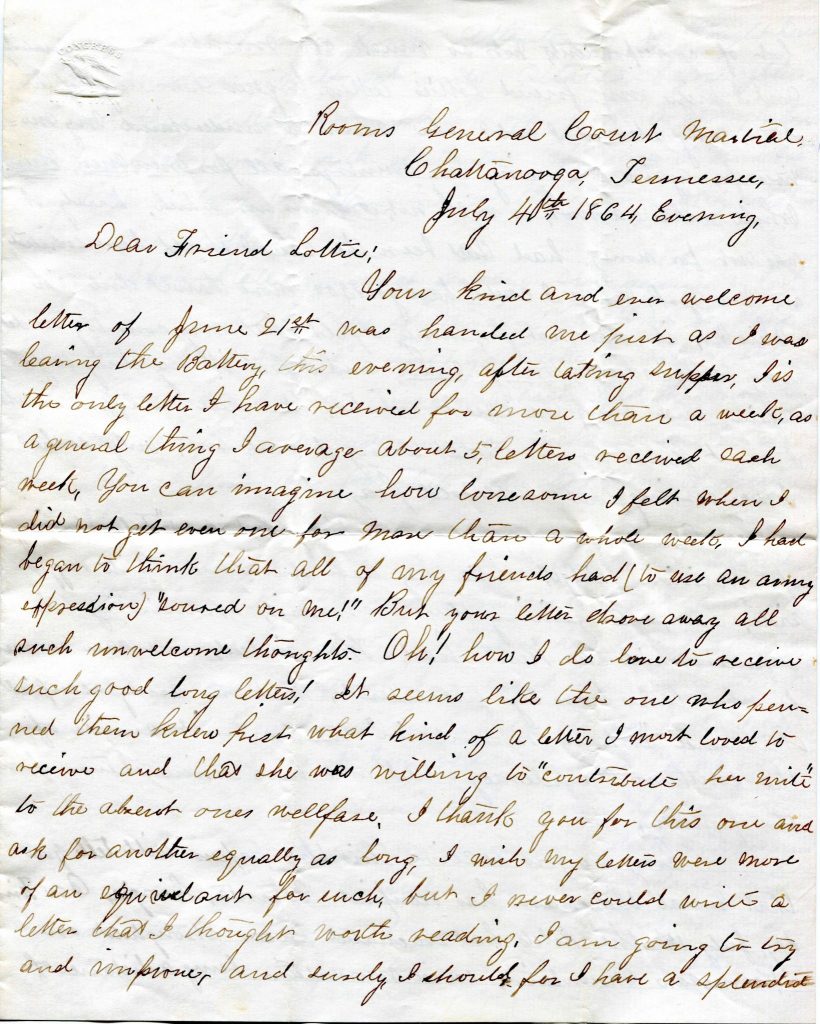 CONGRESS
Rooms General Court Martial,
Chattanooga, Tennessee,
July 4th 1864, Evening,
Dear Friend Lottie!
Your kind and ever welcome
letter of June 21st was handed me just as I was
leaving the Battery, this evening, after taking supper, I is
the only letter I have received for more than a week, as
a general thing I average about 5, letters received each
week, You can imagine how lonesome I felt when I
did not get even one for more than a whole week, I had
began to think that all of my friends had (to use an army
expression) "soured on me!" But your letter drove away all
such unwelcome thoughts. Oh! how I do love to receive
such good long letters! It seems like the one who pen=
ned them knew just what kind of a letter I most loved to
receive and that she was willing to "contribute her mite"
to the absent ones wellfare, I thank you for this one and
ask for another equally as long, I wish my letters were more
of an equivelant for such, but I never could write a
letter that I thought worth reading, I am going to try
and improve, and surely I should, for I have a splendid